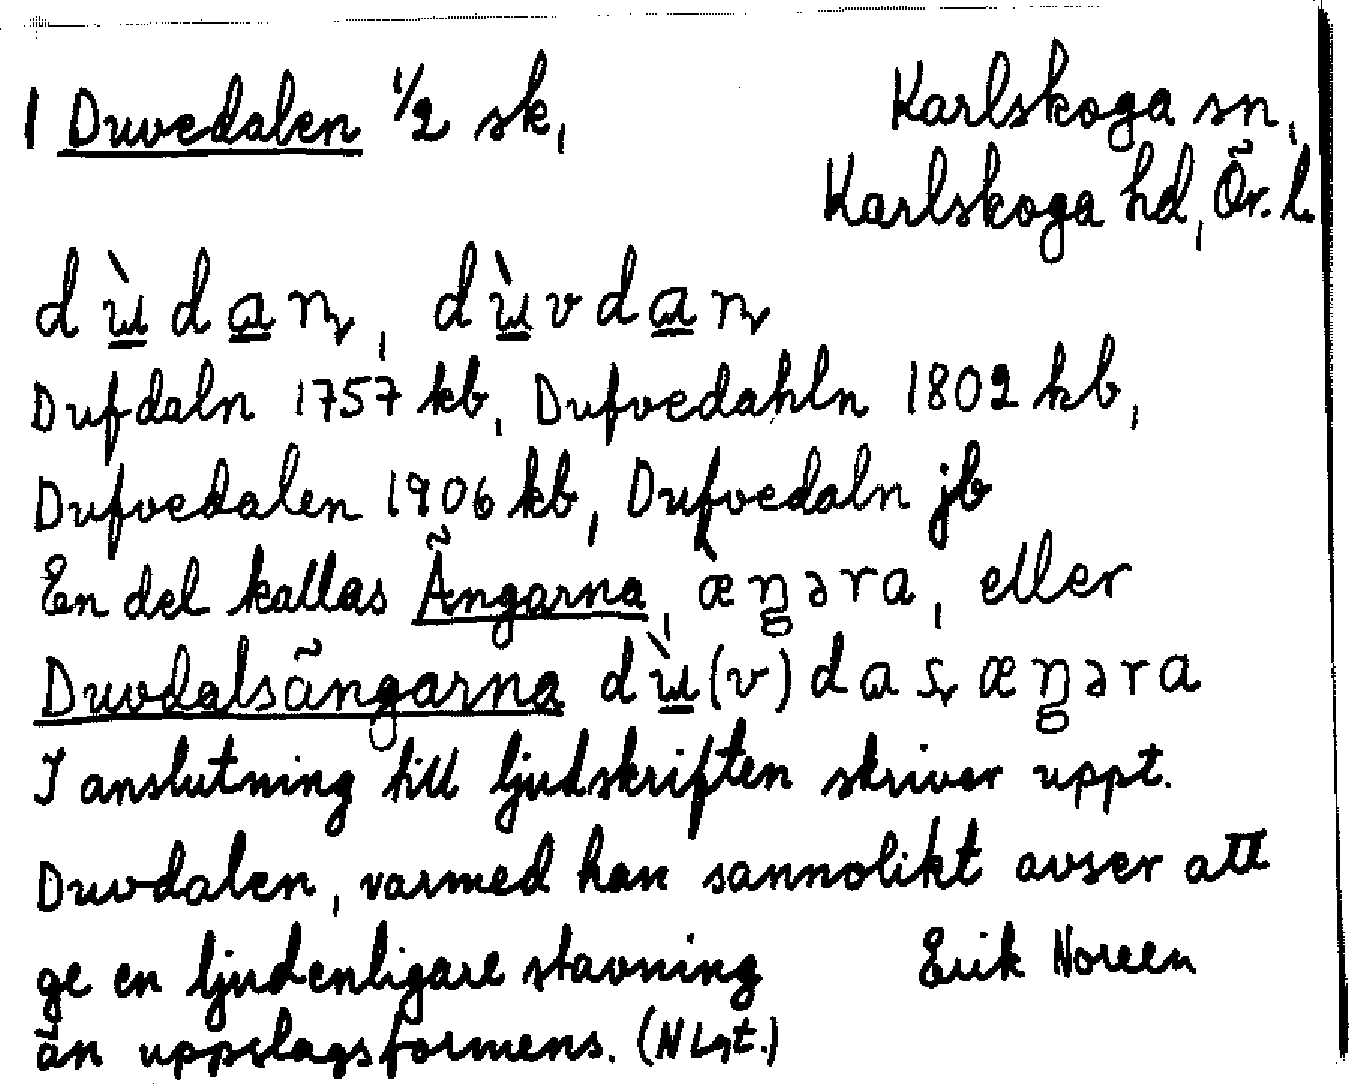 1 Duvedalen 1/2 sk,
Karlskoga sn,
Karlskoga hd, Ör. l.
dùdaɳ, dùvdaɳ
Dufdaln 1757 kb, Dufvedahln 1802 kb,
Dufvedalen 1906 kb, Dufvedaln jb
En del kallas Ängarna, æ̀ŋəra, eller
Duvdalsängarna dù(v)daʂæŋəra
I anslutning till ljudskriften skriver uppt.
Duvdalen, varmed han sannolikt avser att
ge en ljudenligare stavning
än uppslagsformens.
Erik Noreen